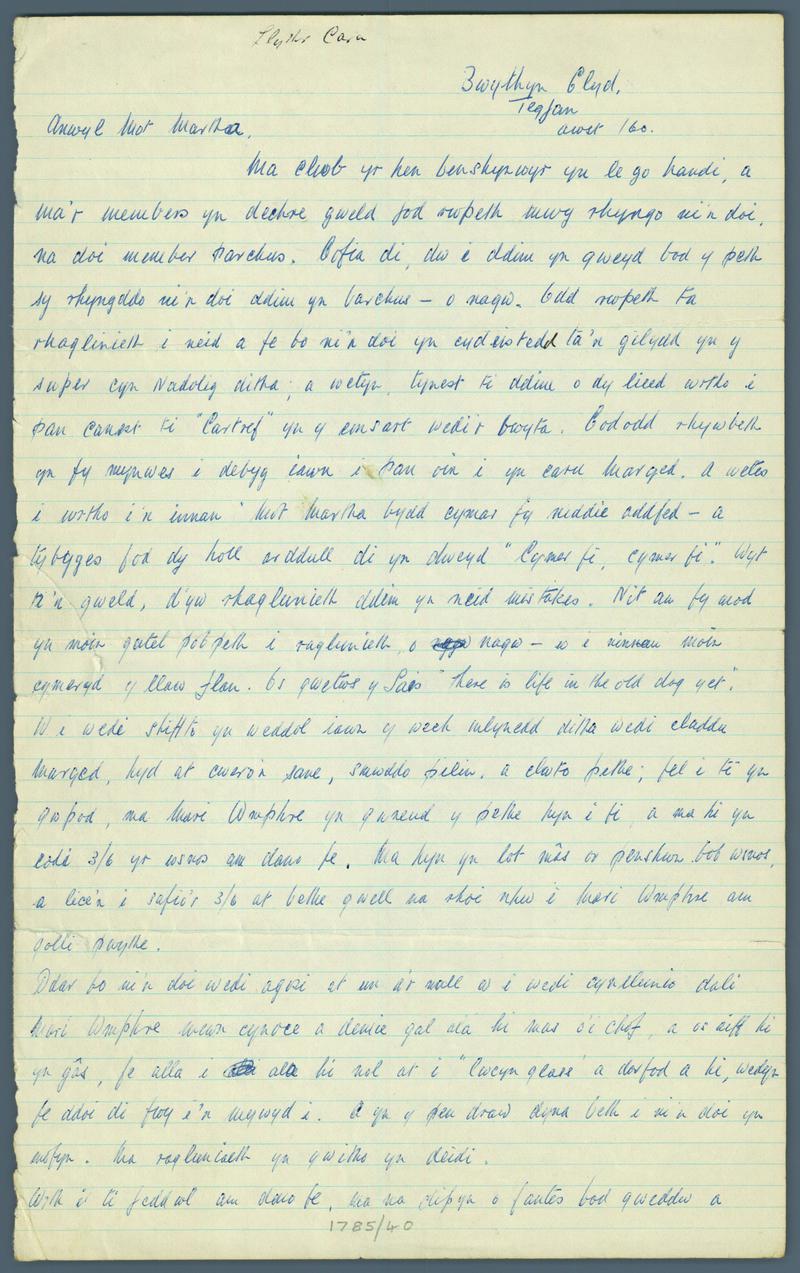 Llythr Caru
Bwythyn Clyd.
Tegfan
awst 160.
Anwyl Mot Martha,
Ma clwb yr hen benshynwyr yn le go handi, a
ma'r members yn dechre gweld fod rwpeth mwy rhyngo ni'n doi,
na doi member parchus. Cofia di, dw i ddim yn gweyd bod y peth
sy rhyngddo ni'n doi ddim yn barchus – o nagw. Odd rwpeth fa
rhagliniēth i neid a fe bo ni'n doi yn cydeistedd ta'n gilydd yn y
swper cyn Nadolig ditha; a wetyn, tynest ti ddim o dy liced wrtho i
pan canost ti "Cartref" yn y consart wedi'r bwyta. Cododd rhywbeth
yn fy mynwes i debyg iawn i pan oin i yn caru Marged. A wetes
i wrtho i'n innan "Mot Martha bydd cymar fy niddie addfed – a
tybyges fod dy holl arddull di yn dweyd "Cymer fi, cymer fi". Wyt
ti'n gweld, d'yw rhagluniēth ddim yn neid mistakes. Nit am fy mod
yn moin gatel popeth i ragluniēth, o nagw – w i ninnau moin
cymeryd y llaw flan. Os gwetws y Sais "There is life in the old dog yet".
W i wedi shiffto yn weddol iawn y wech mlynedd ditha wedi claddu
Marged, hyd at cwero'n sane, smwddo pilin, a clwto pethe; fel i ti yn
gwpod, ma Mari Wmphre yn gwneud y pethe hyn i fi, a ma hi yn
codi 3/6 yr wsnos am dano fe. Ma hyn yn lot mâs or penshwn bob wsnos,
a lice'n i safio'r 3/6 at bethe gwell na rhoi nhw i Mari Wmphre am
golli pwythe.
Ddar bo ni'n doi wedi agosi at un a'r nall w i wedi cynllunio dali
Mari Wmphre mewn cynoce a denice gal ala hi mas o'i chof, a os aiff hi
yn gâs, fe alla i ala hi nol at i "Cwcyn glass" a darfod a hi, wedyn
fe ddoi di fwy i'n mywyd i. A yn y pen draw dyna beth i ni'n doi yn
mofyn. Ma ragluniaeth yn gwitho yn deidi.
Wrth i ti feddwl am dano fe, ma na dipyn o fantes bod gweddw a
1785/40